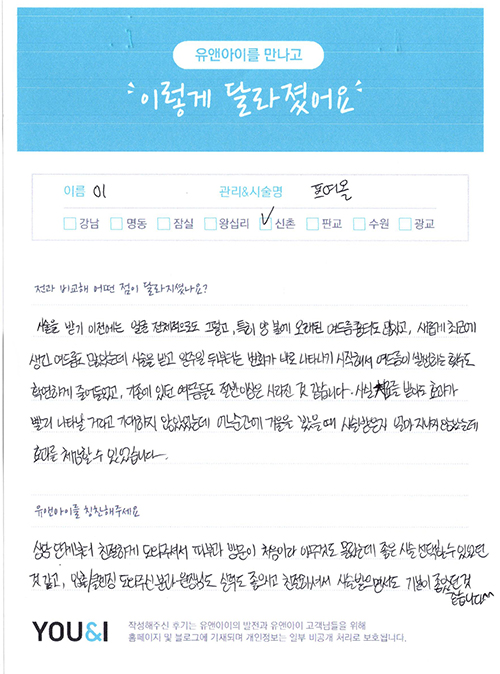 유앤아이를 만나고
이렇게 달라졌어요
이름 이 관리&시술명 프떠몰
강남 명동 잠실 왕십리 신촌 판교 수원 광교
전과 비교해 어떤 점이 달라지셨나요?
시술을 받기 이전에는 얼굴 전체적으로도 그렇고, 특히 양 볼에 오래된 여드름 흉터도 많았고, 새롭게 최근에
생긴 여드름도 많았는데 시술을 받고 일주일 뒤부터는 변화가 바로 나타나기 시작해서 여드름이 발생하는 횟수도
확연하게 줄어들었고, 기존에 있던 여드름들도 절반이상은 사라진 것 같습니다. 사실 치료를 받아도 효과가
빨리 나타날 거라고 기대하지 않았었는데 어느순간에 거울을 봤을때 시술받은지 얼마 지나지 않았는데
효과를 체감할 수 있었습니다.
유앤아이를 칭찬해주세요
상담 단계부터 친절하게 도와주셔서 피부과 방문이 처음이라 아무것도 몰랐는데 좋은 시술 선택할 수 있었던
것 같고, 도와주신 분과 원장님도 실력도 좋으시고 친절하셔서 시술받으면서도 기분이 좋았던 것
같습니다~
YOU&I 작성해주신 후기는 유앤아이의 발전과 유앤아이 고객님들을 위해
홈페이지 및 블로그에 기재되며 개인정보는 일부 비공개 처리로 보호됩니다.